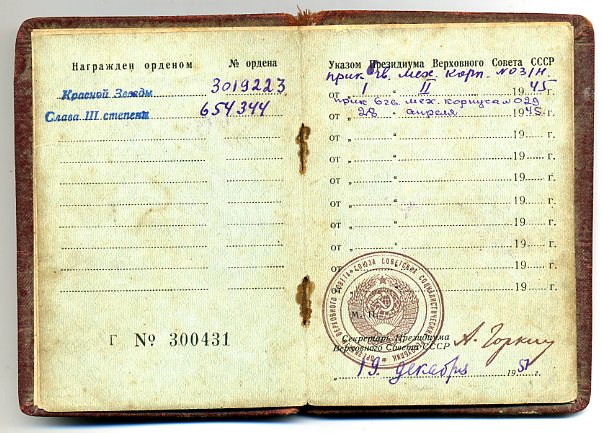 Награжден орденом № ордена
Красной Звезды 3019223
Слава III степени 654344
Г № 300431
Указом Президиума Верховного Совета СССР
прик гв. мех. корп. № 031/н.
от „ 1 “ II 1945 г.
прик 6 гв. мех. корпуса № 029
от „ 28 “ апреля 1945 г.
от „ “ 19 г.
от „ “ 19 г.
от „ “ 19 г.
от „ “ 19 г.
от „ “ 19 г.
от „ “ 19 г.
от „ “ 19 г.
М. П.
Секретарь Президиума
Верховного Совета СССР А. Горкин
„ 19 “ декабря 1951 г.